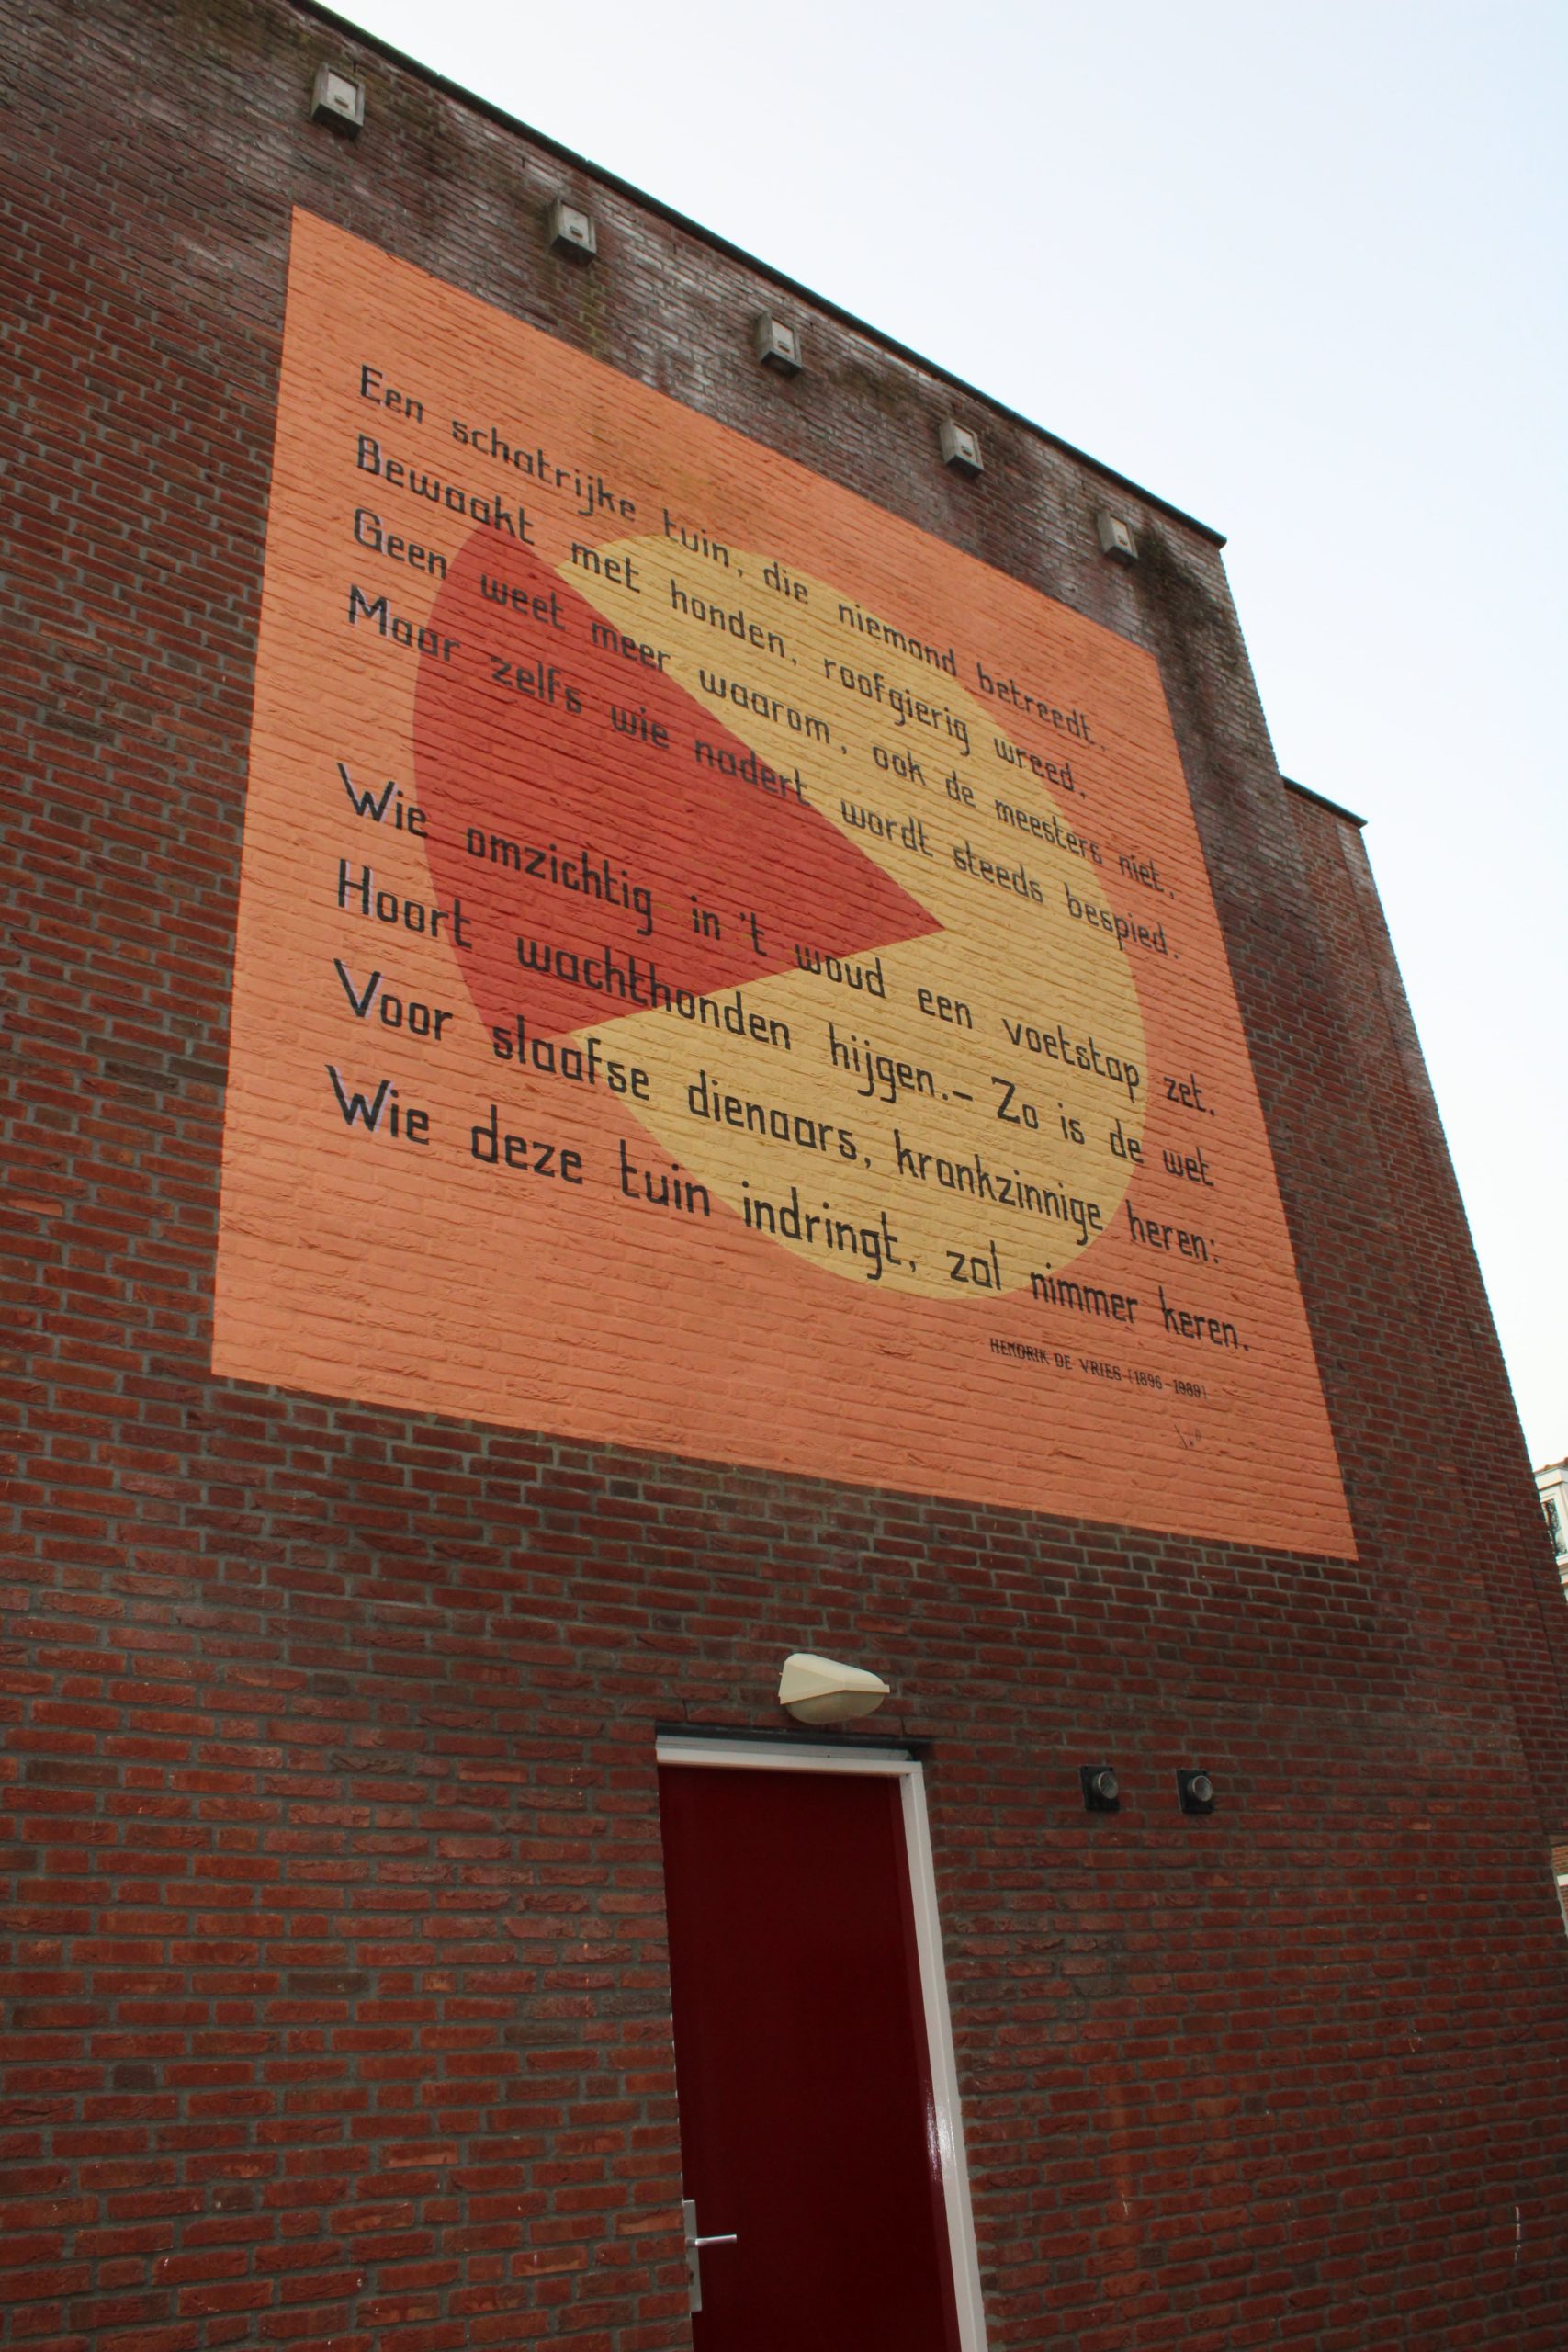 Een schatrijke tuin, die niemand betreedt,
Bewaakt met honden, roofgierig wreed.
Geen weet meer waarom, ook de meesters niet.,
Maar zelfs wie nadert wordt steeds bespied.
Wie omzichtig in 't woud een voetstap zet.
Hoort wachthonden hijgen.– Zo is de wet
Voor slaafse dienaars, krankzinnige heren:
Wie deze tuin indringt, zal nimmer keren.
HENDRIK DE VRIES (1896-1989)